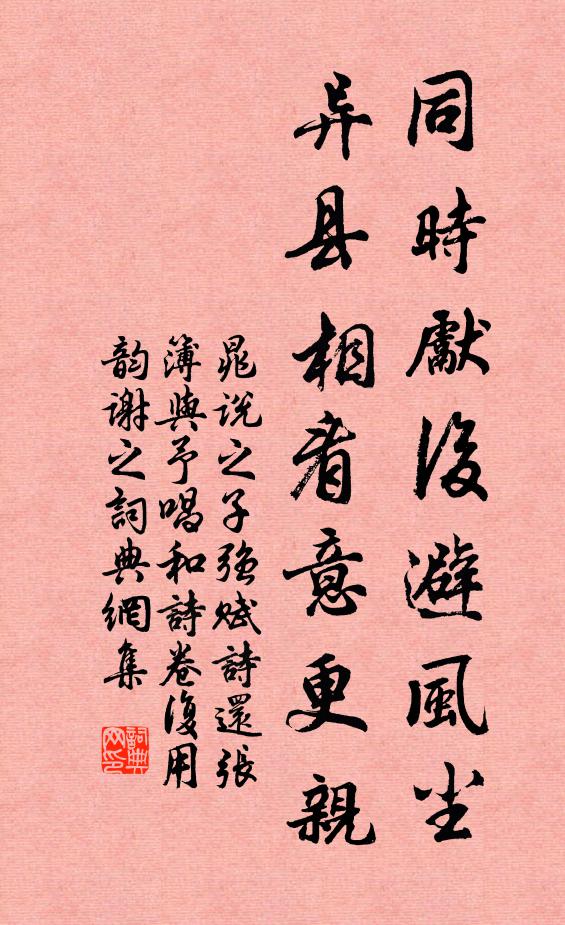 同時獻後避風尘
异县相看意更親
晁说之子强赋詩還張
簿與予唱和詩卷復用
韵谢之詞典網集
詞典网印